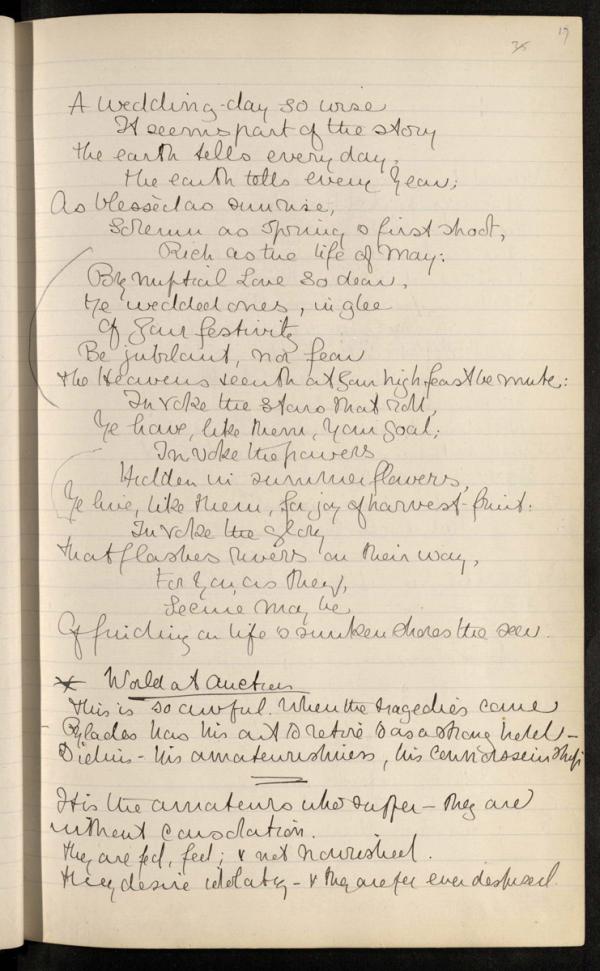 35 19
A wedding-day so wise
It seems part of the story
The earth tells every day,
The earth tells every year;
As blessèd as sunrise,
Solemn as spring's first shoot,
Rich as the life of May:
By nuptial Love so dear,
Ye wedded ones, in glee
Of your festivity
Be jubilant, nor fear
The Heavens seenth at your high feast be mute:
Invoke the stars that roll,
Ye have, like them, your goal;
Invoke the powers
Hidden in summer flowers,
Ye live, like them, for joy of harvest-fruit.
Invoke the glory
That flashes rivers on their way,
For you, as they,
Secure may be
Of finding on life's sunken shores the sea.
x World at Auction
This is so awful. When the tragedies come
Pylades has his art to retire to as a strong hold –
Didius – his amateurishness, his connoisseurship
It is the amateurs who suffer – they are
without consolation.
They are fed, fed; & not nourished.
They desire idolatry – & they are for ever despised.